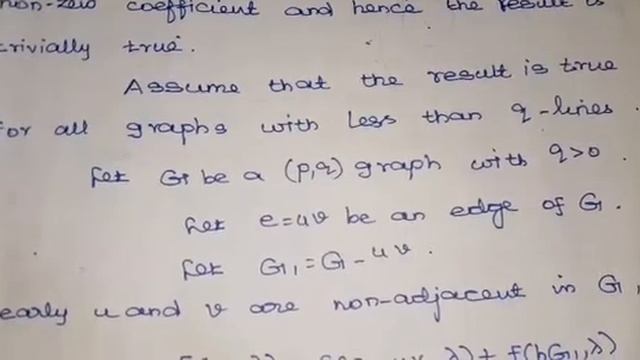 non-zero coefficient and hence the result is
trivially true.
Assume that the result is true
for all graphs with less than q-lines.
Let G be a (p,q) graph with q>0.
Let e=uv be an edge of G.
Let G₁=G-uv.
early u and v are non-adjacent in G₁
λ)+f(hG₁,λ)